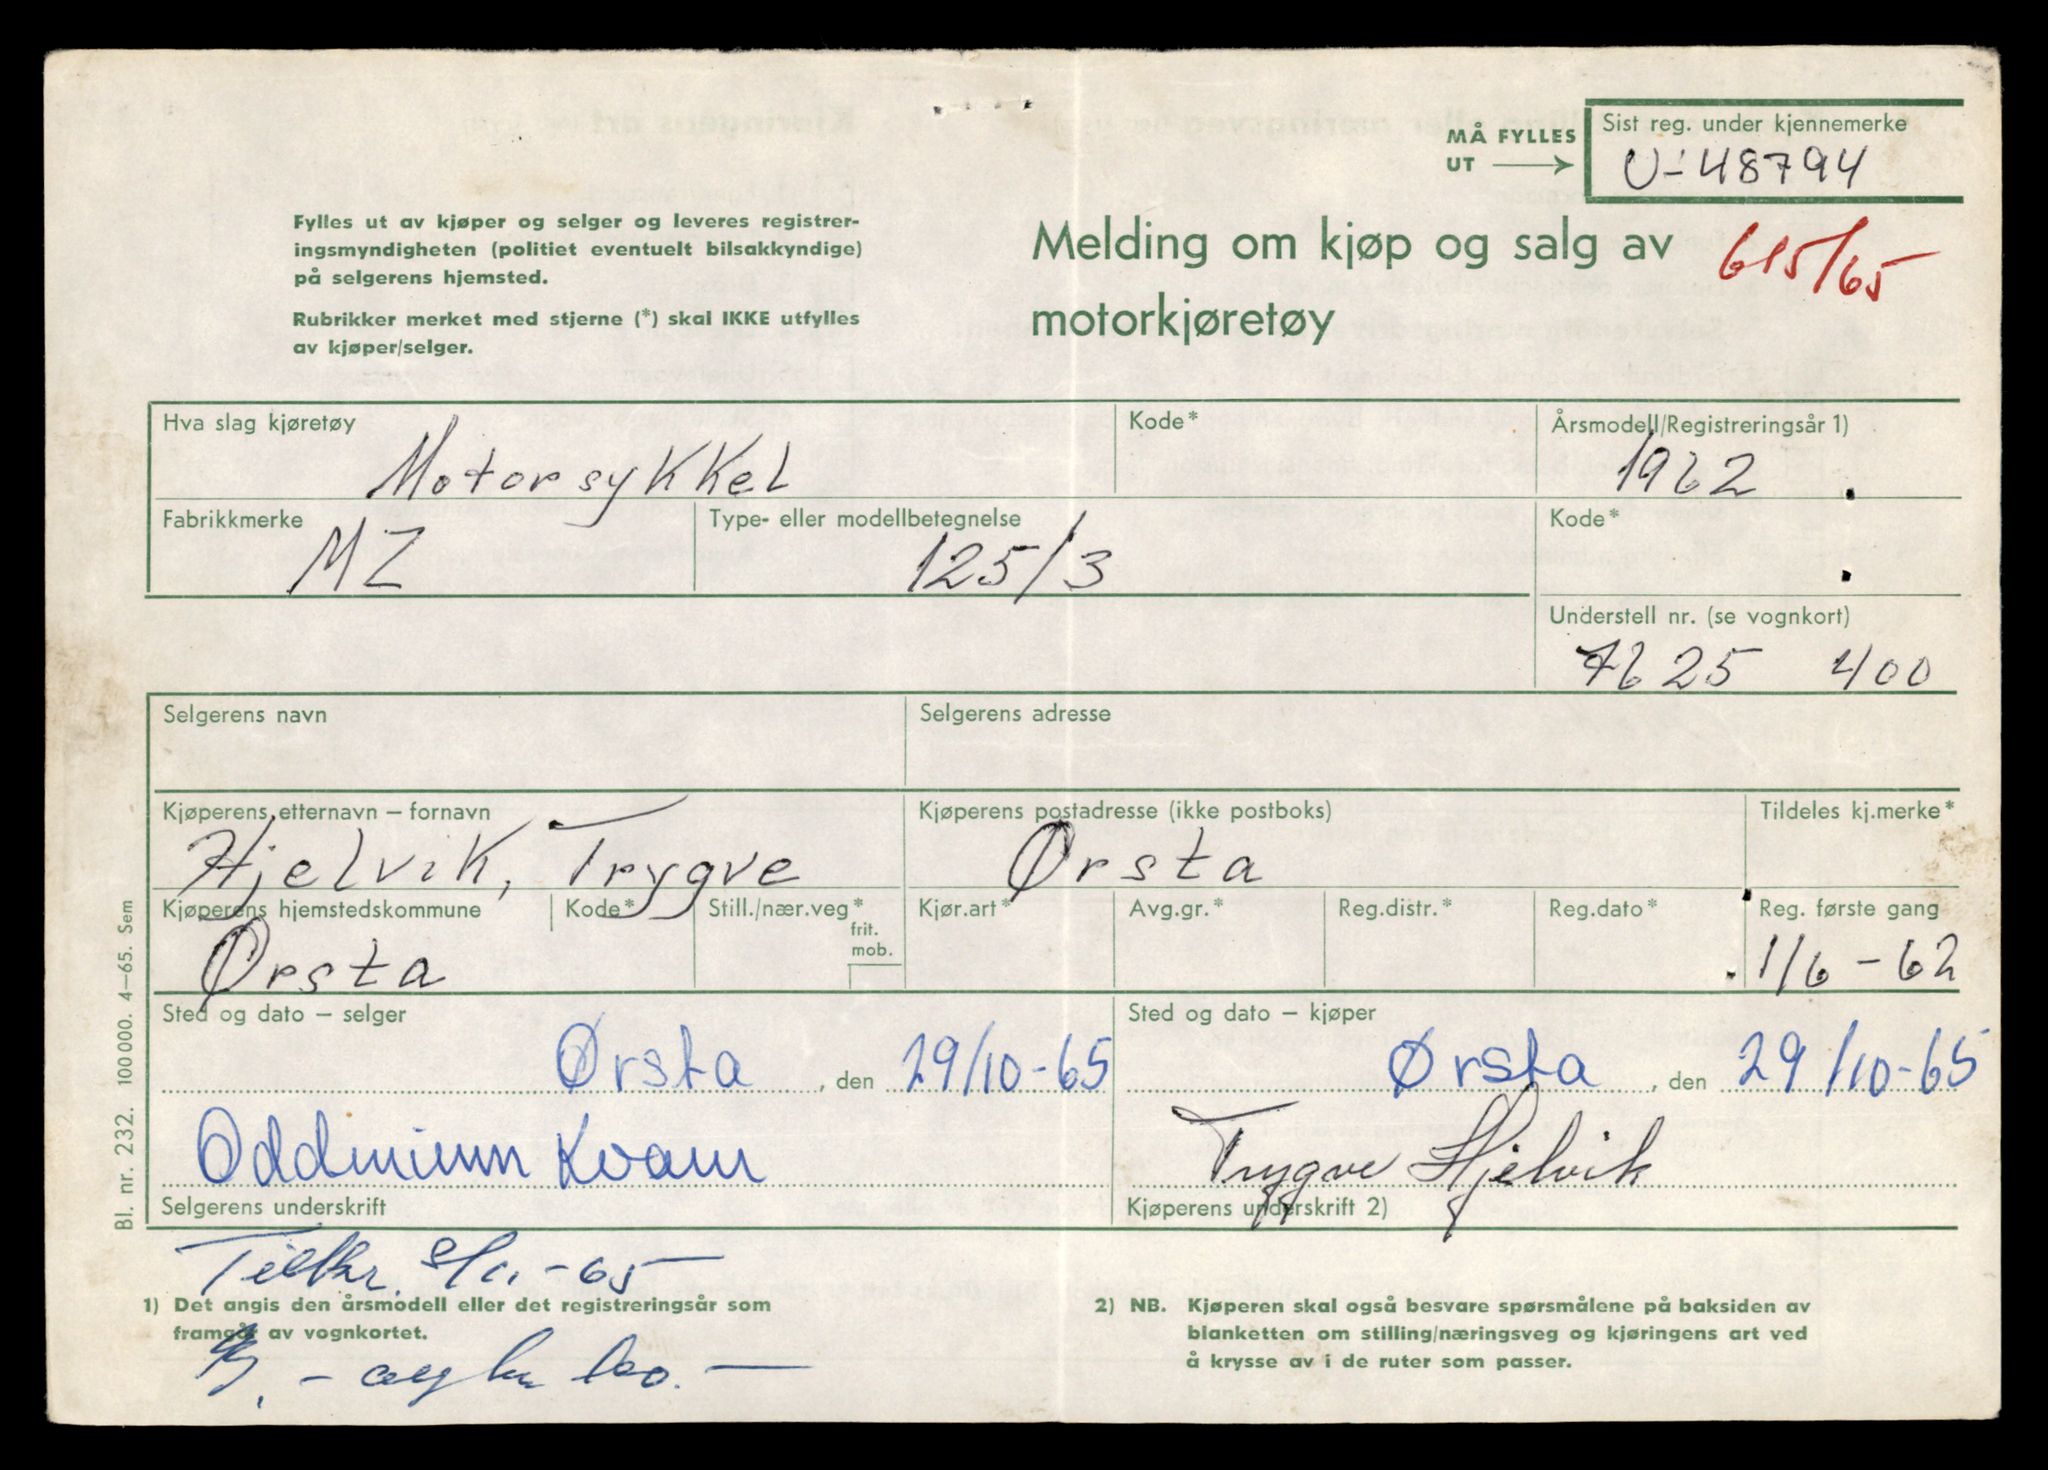 MÅ FYLLES
UT
Sist reg. under kjennemerke
U-48794
Fylles ut av kjøper og selger og leveres registrer-
ingsmyndigheten (politiet eventuelt bilsakkyndige)
på selgerens hjemsted.
Rubrikker merket med stjerne (*) skal IKKE utfylles
av kjøper/selger.
Melding om kjøp og salg av
motorkjøretøy
615/65
Hva slag kjøretøy
Motorsykkel
Kode*
Årsmodell/Registreringsår 1)
1962
Fabrikkmerke
MZ
Type- eller modellbetegnelse
125/3
Kode*
Understell nr. (se vognkort)
7625 400
Selgerens navn
Selgerens adresse
Kjøperens etternavn – fornavn
Hjelvik, Trygve
Kjøperens postadresse (ikke postboks)
Ørsta
Tildeles kj.merke*
Kjøperens hjemstedskommune
Ørsta
Kode*
Still./nær.veg*
frit.
mob.
Kjør.art*
Avg.gr.*
Reg.distr.*
Reg.dato*
Reg. første gang
1/6-62
Sted og dato – selger
Ørsta, den 29/10-65
Sted og dato – kjøper
Ørsta, den 29/10-65
Oddmunn Kvam
Selgerens underskrift
Trygve Hjelvik
Kjøperens underskrift 2)
Bl. nr. 232. 100 000. 4–65. Sem
-65
1) Det angis den årsmodell eller det registreringsår som
framgår av vognkortet.
2) NB. Kjøperen skal også besvare spørsmålene på baksiden av
blanketten om stilling/næringsveg og kjøringens art ved
å krysse av i de ruter som passer.